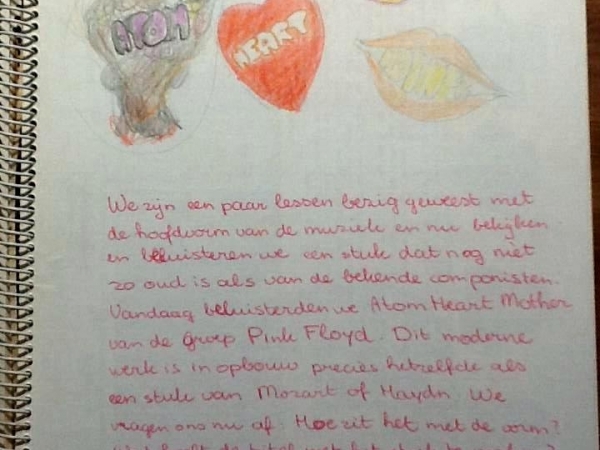 ATOM
HEART
We zijn een paar lessen bezig geweest met
de hoofdvorm van de muziek en nu bekijken
en beluisteren we een stuk dat nog niet
zo oud is als van de bekende componisten.
Vandaag beluisterden we Atom Heart Mother
van de groep Pink Floyd. Dit moderne
werk is in opbouw precies hetzelfde als
een stuk van Mozart of Haydn. We
vragen ons nu af: Hoe zit het met de vorm?